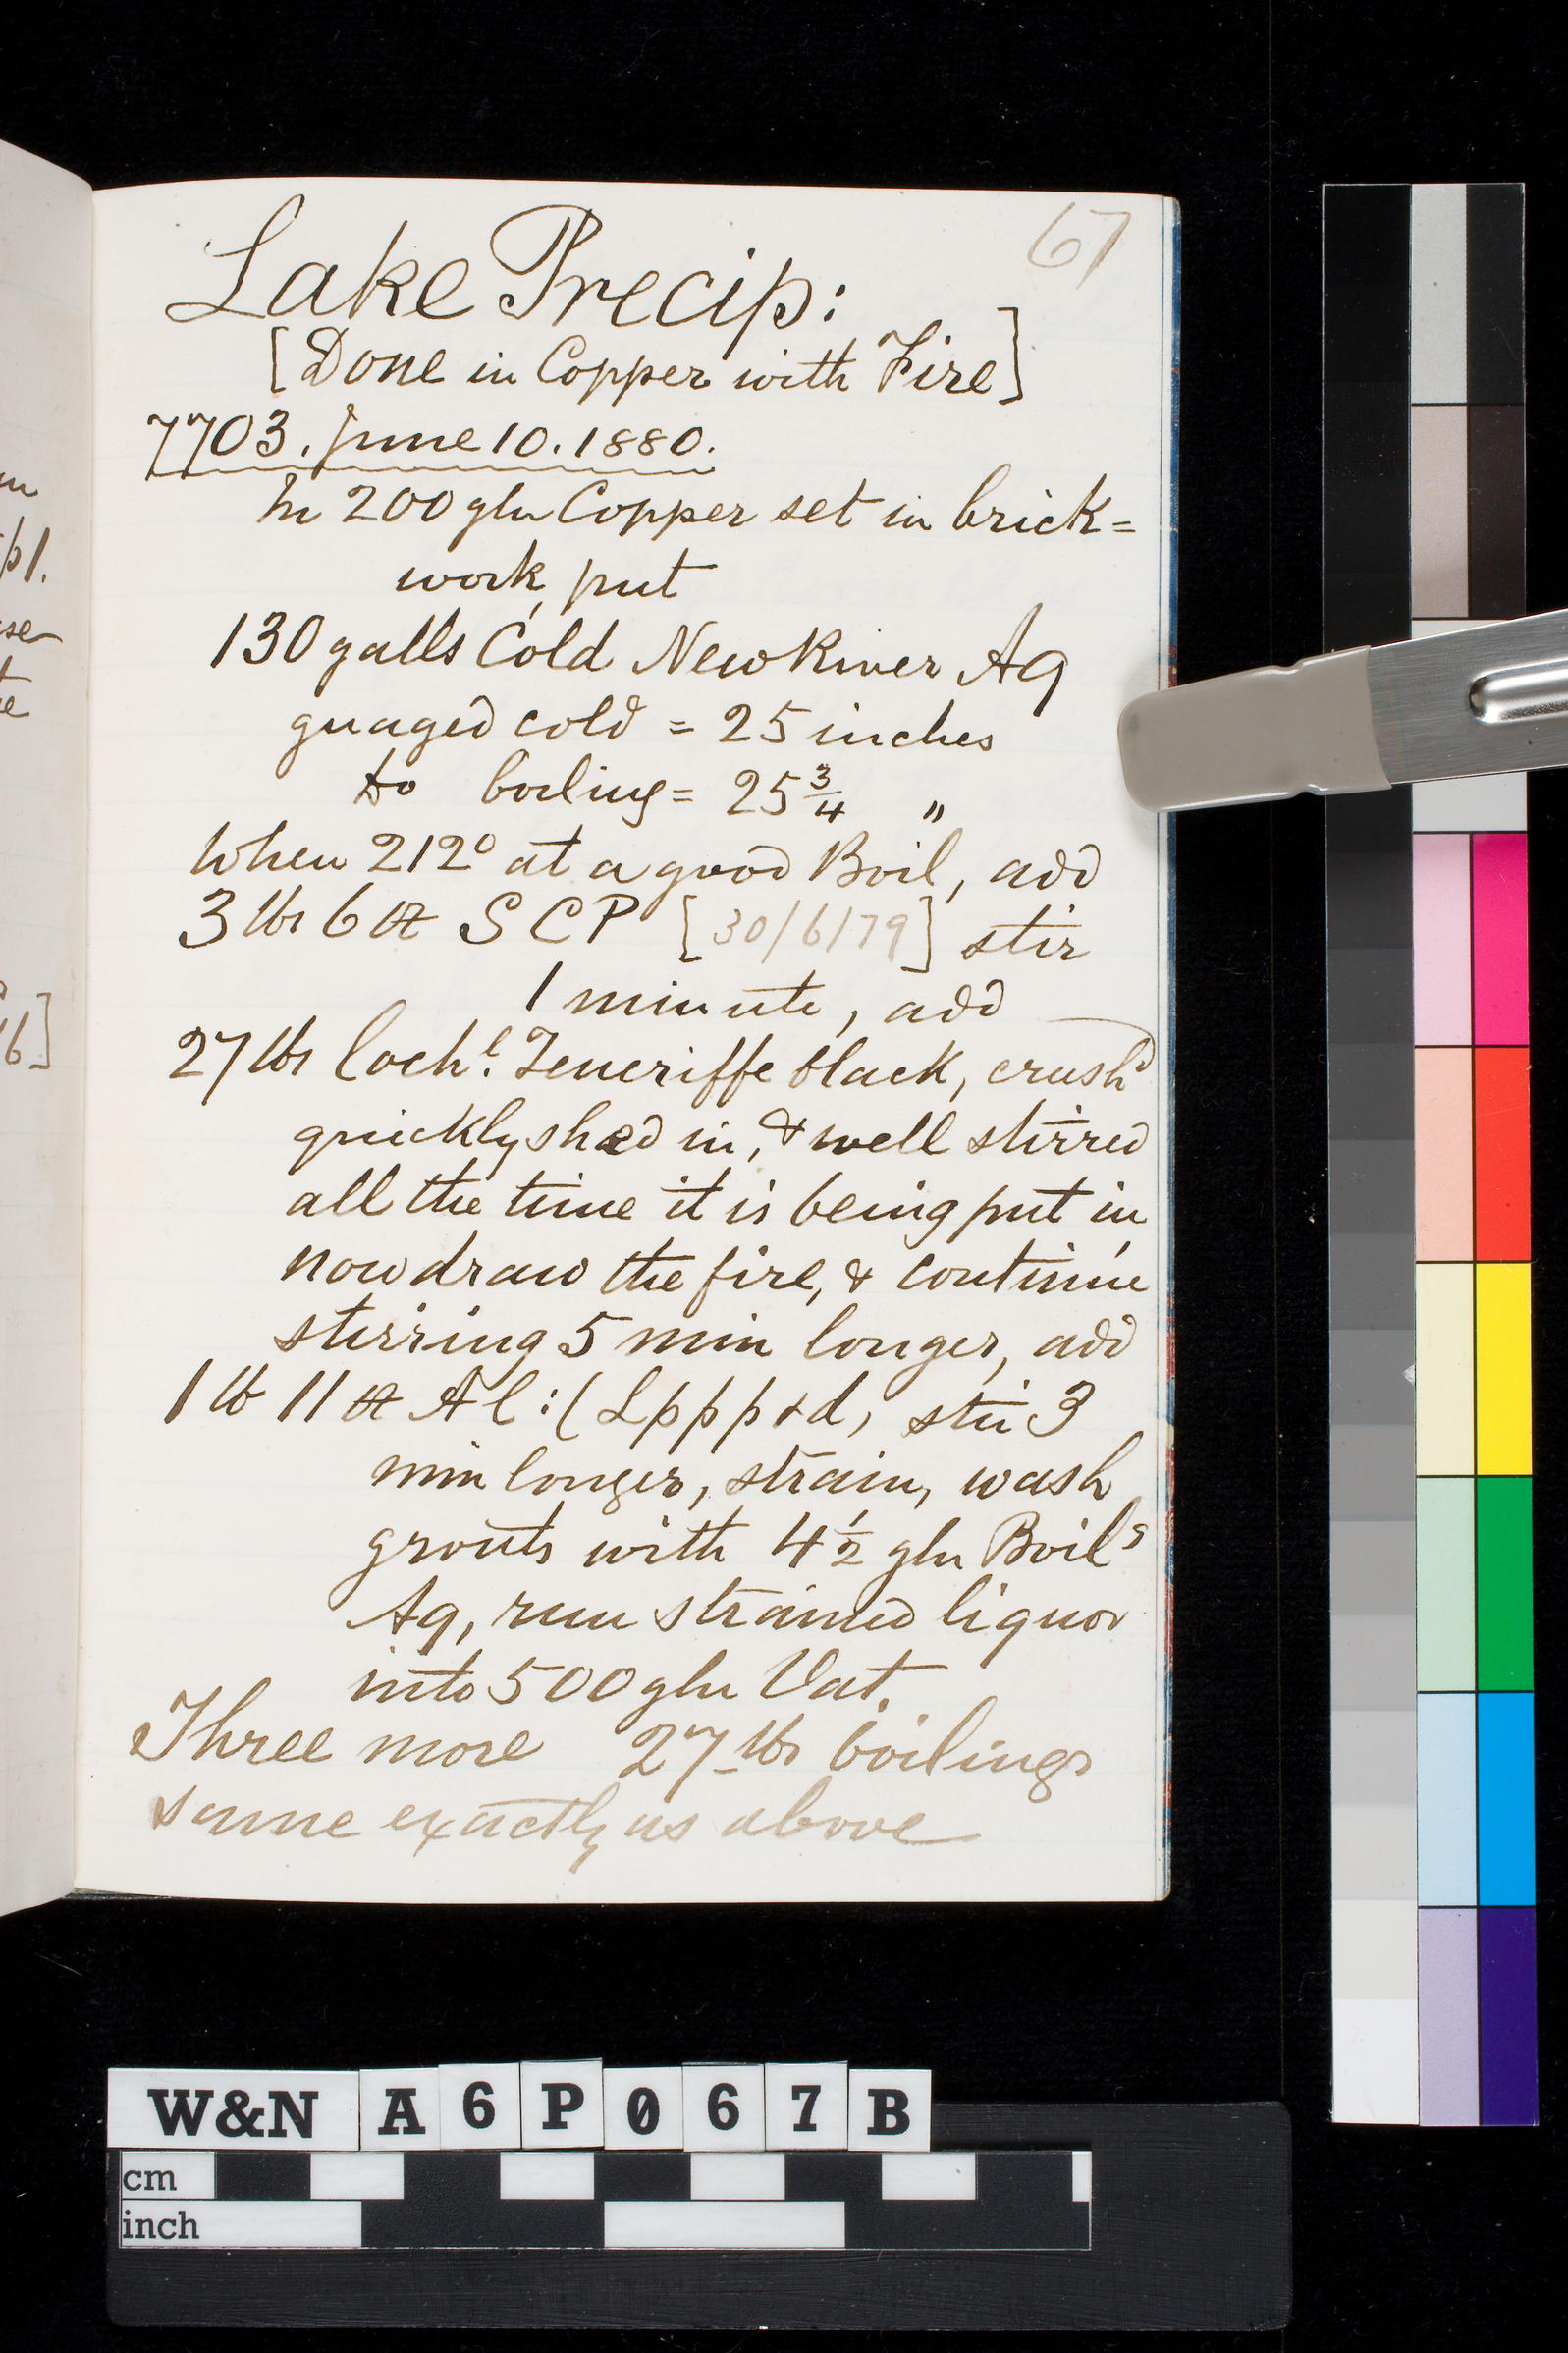 67
Lake Precip:
[Done in Copper with Fire]
7703. June 10. 1880.
In 200 gln Copper set in brick=
work, put
130 galls Cold New River Aq
guaged cold = 25 inches
do boiling = 25 3/4 "
When 212° at a good Boil, add
3 lbs 6 oz S C P [30/6/79] stir
1 minute, add
27 lbs Cochl. Teneriffe black, crushd
quickly shed in, & well stirred
all the time it is being put in,
now draw the fire, & continue
stirring 5 min longer, add
1 lb 11 oz Al: (Lppp&d, stir 3
min longer, strain, wash
grouts with 4 1/2 gln Boilg
Aq, run strained liquor
into 500 gln Vat.
Three more 27 lbs boilings
same exactly as above
W&N A6P067B
cm
inch